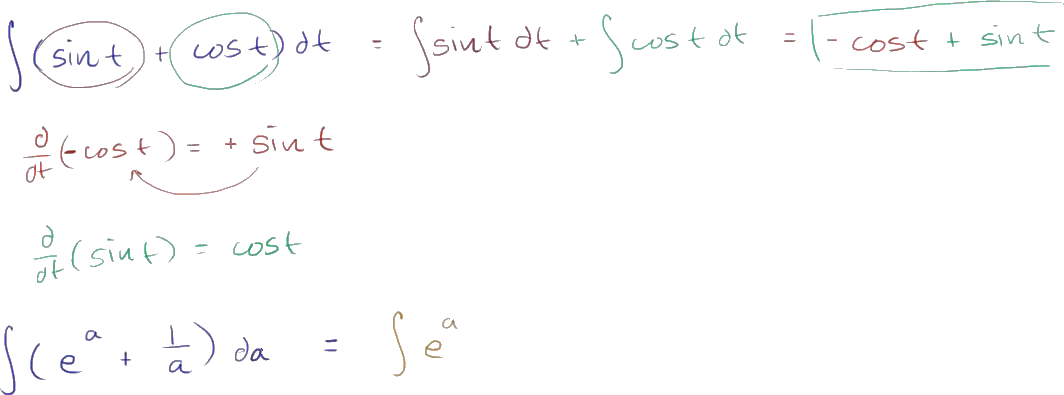 ∫(sin t + cos t) dt = ∫sin t dt + ∫cos t dt = -cos t + sin t
d/dt (-cos t) = + sin t
d/dt (sin t) = cos t
∫(e^a + 1/a) da = ∫e^a